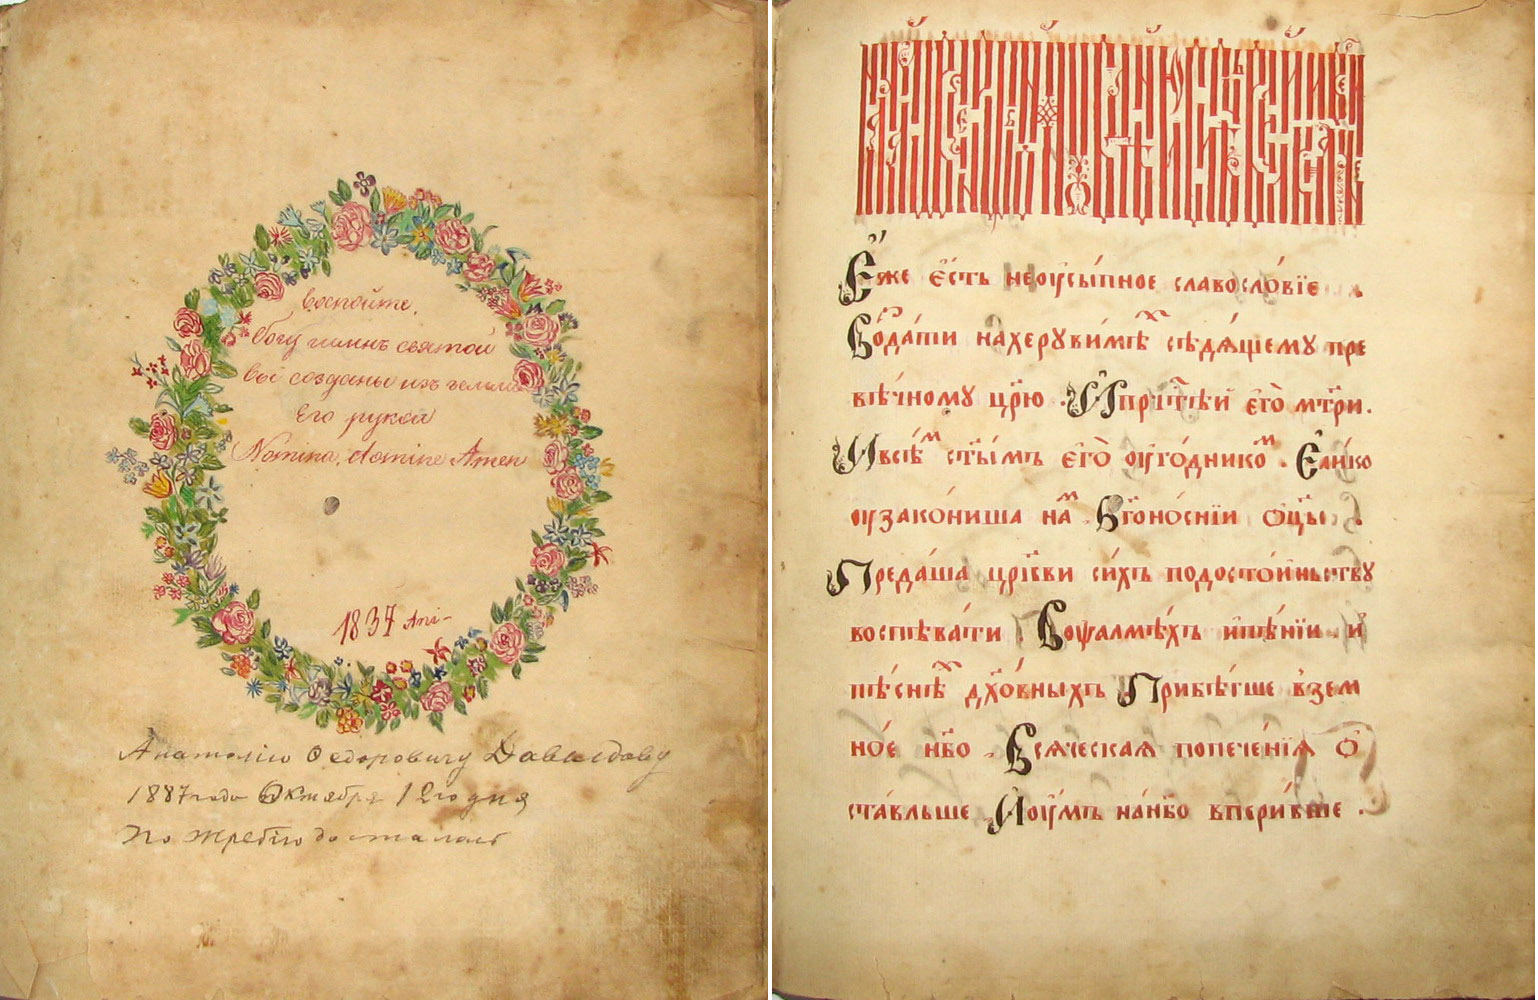 воспойте,
богу гимнъ святой
вы созданы изъ земли
Его рукой
Nomina, domine Amen
1837 Ani-
Анатолію Ѳедоровичу Давыдову
1887 года Октября 12го дня
По жребію досталась
Е́же є҆́сть неѹсы́пное славосло́вїе .
Во́даѧти нахерꙋви́мѣⷯ сѣдѧ́щемꙋ пре
вѣ́чномꙋ цр҃ю . И҆прⷭ҇тѣ́й є҆гѡ̀ мт҃ри.
И҆всѣⷨ ст҃ы́мъ є҆гѡ̀ оѹго́дникоⷨ . Е҆ли́ко
оѹзако́ниша наⷨ . Бг҃оно́снїи ѻ҆ц҃ы .
Преда́ша цр҃кви си́хъ подостои́ньствꙋ
воспѣва́ти Воѱалмѣ́хъ ипѣ́нїи и
пѣ́снѣⷯ дх҃о́вныхъ Прибѣ́гше в̾зем
но́е нб҃о . Всѧ́ческаѧ попече́нїѧ ѻ҆
ста́вльше И҆оѹ́мъ нанб҃о впери́вше .